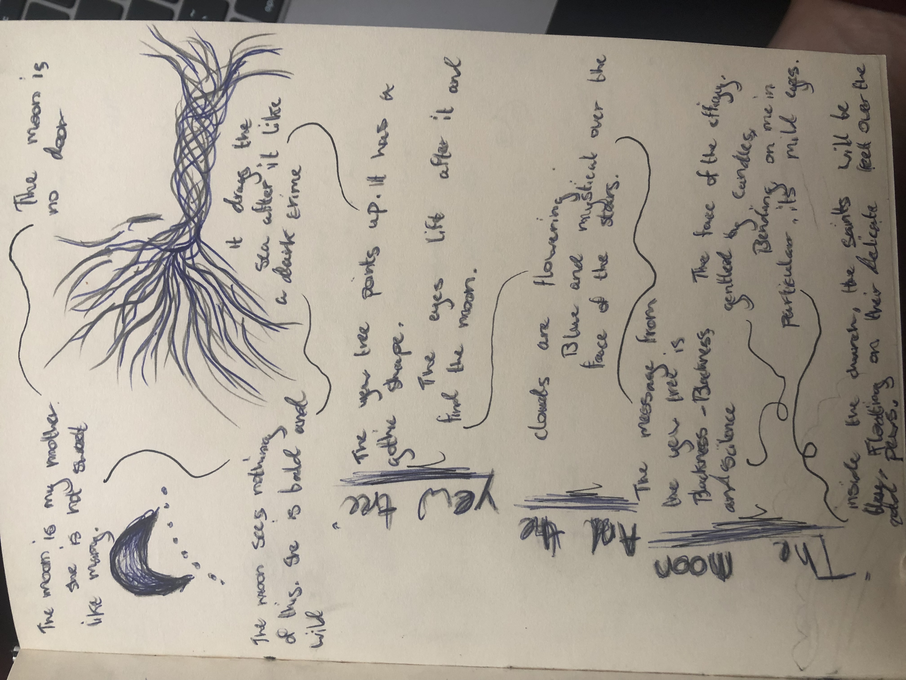 The moon is
no door
it drags the
sea after it like
a dark crime
The moon is my mother.
she is not sweet
like mary.
The moon sees nothing
of this. She is bald and
wild
The yew tree points up. it has a
gothic shape.
The eyes lift after it and
find the moon.
clouds are flowering.
Blue and mystical over the
face of the stars.
The message from
the yew tree is
Blackness - Blackness
and silence
The face of the effigy,
gentled by candles,
Bending, on me in
particular, its mild eyes.
inside the church, the saints will be
blue, Floating on their delicate feet over the
cold pews.
"The
moon
And
the
Yew
tree"